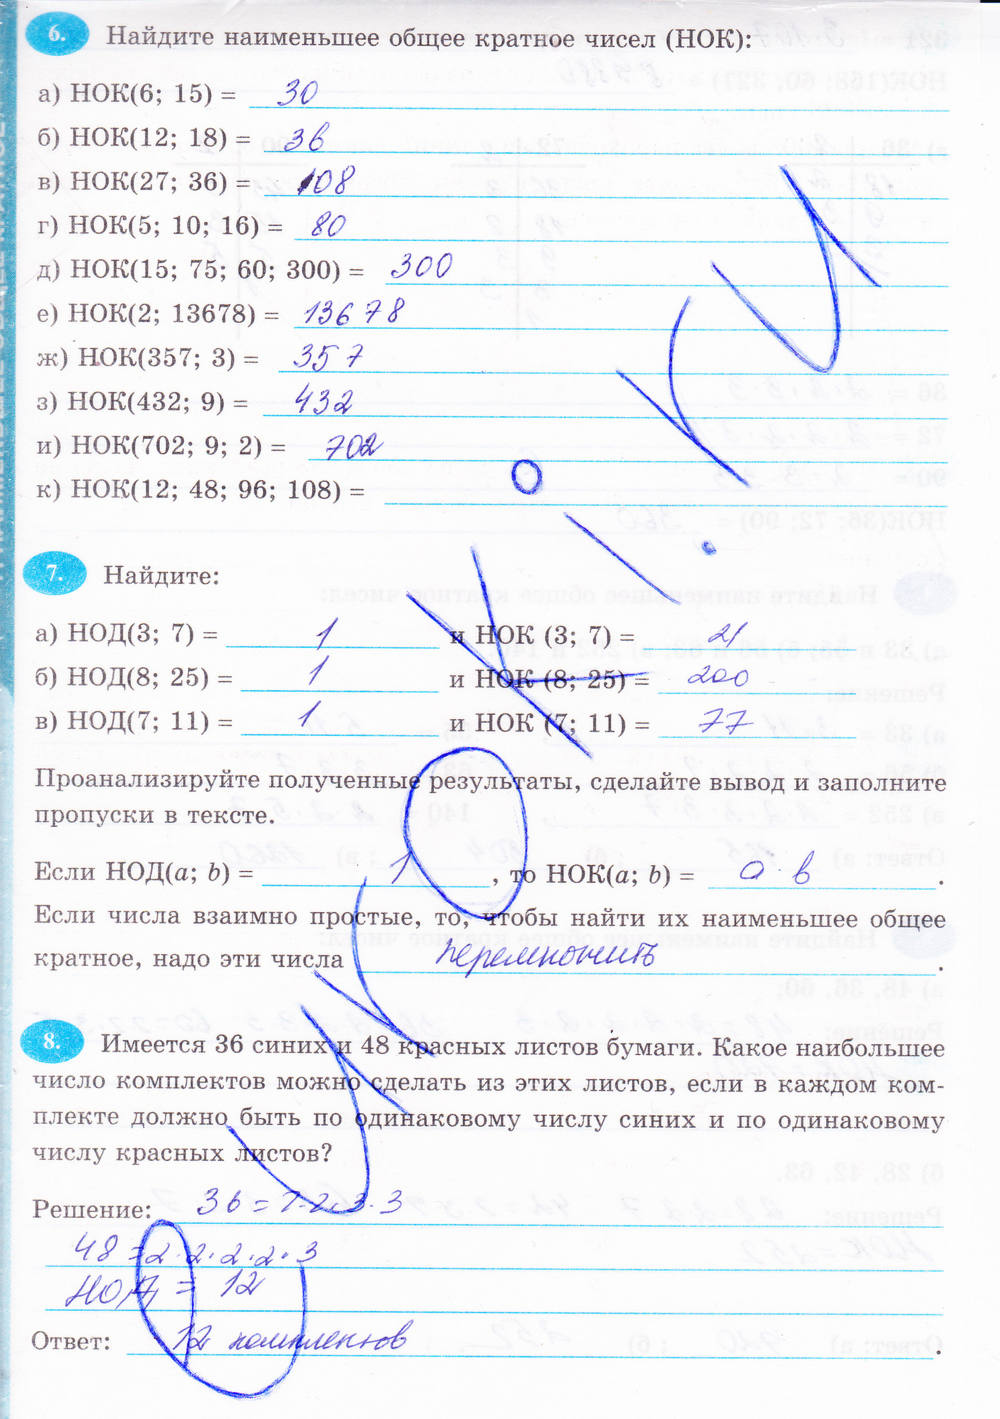 6. Найдите наименьшее общее кратное чисел (НОК):
а) НОК(6; 15) = 30
б) НОК(12; 18) = 36
в) НОК(27; 36) = 108
г) НОК(5; 10; 16) = 80
д) НОК(15; 75; 60; 300) = 300
е) НОК(2; 13678) = 13678
ж) НОК(357; 3) = 357
з) НОК(432; 9) = 432
и) НОК(702; 9; 2) = 702
к) НОК(12; 48; 96; 108) =
7. Найдите:
а) НОД(3; 7) = 1 и НОК (3; 7) = 21
б) НОД(8; 25) = 1 и НОК (8; 25) = 200
в) НОД(7; 11) = 1 и НОК (7; 11) = 77
Проанализируйте полученные результаты, сделайте вывод и заполните
пропуски в тексте.
Если НОД(a; b) = 1, то НОК(a; b) = а · в.
Если числа взаимно простые, то, чтобы найти их наименьшее общее
кратное, надо эти числа перемножить.
8. Имеется 36 синих и 48 красных листов бумаги. Какое наибольшее
число комплектов можно сделать из этих листов, если в каждом ком-
плекте должно быть по одинаковому числу синих и по одинаковому
числу красных листов?
Решение: 36 = 2·2·3·3
48 = 2·2·2·2·3
НОД = 12
Ответ: 12 комплектов.